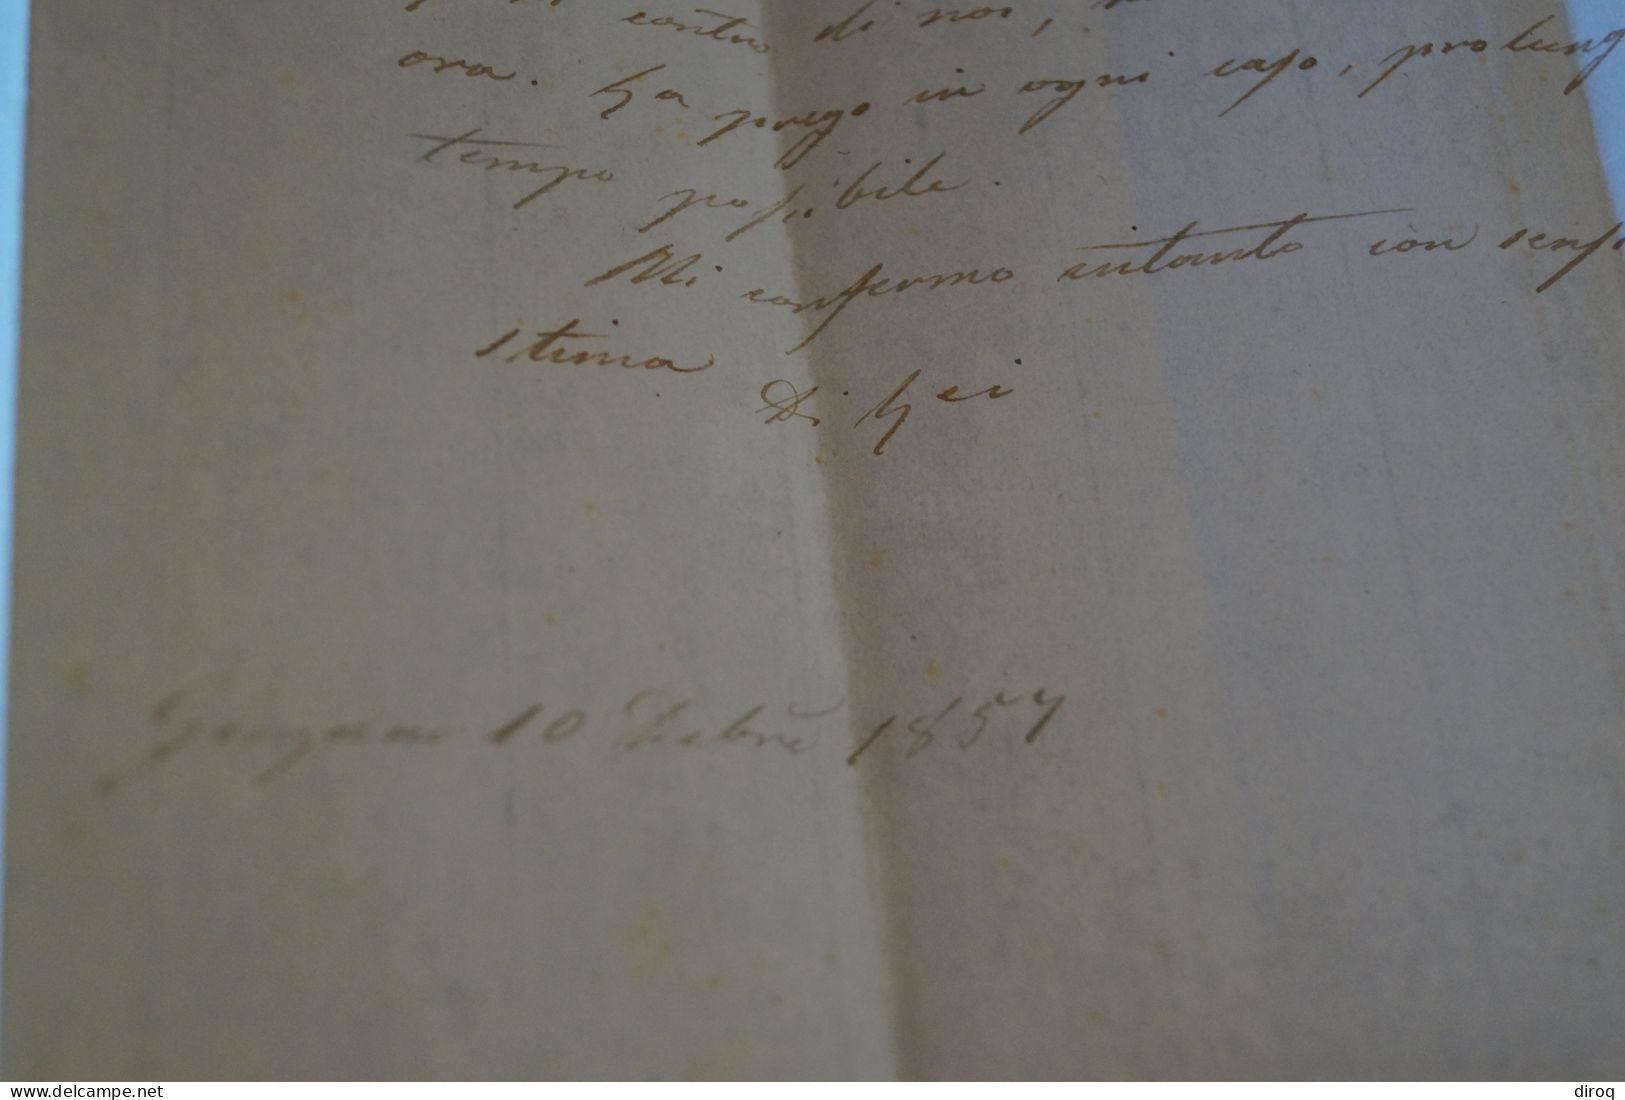 contro di noi,
ora. La prego in ogni caso, prolung
tempo possibile.
Mi confermo intanto con sens
stima
Di Lei
Genzano 10 Debrē 1857
www.delcampe.net
diroq